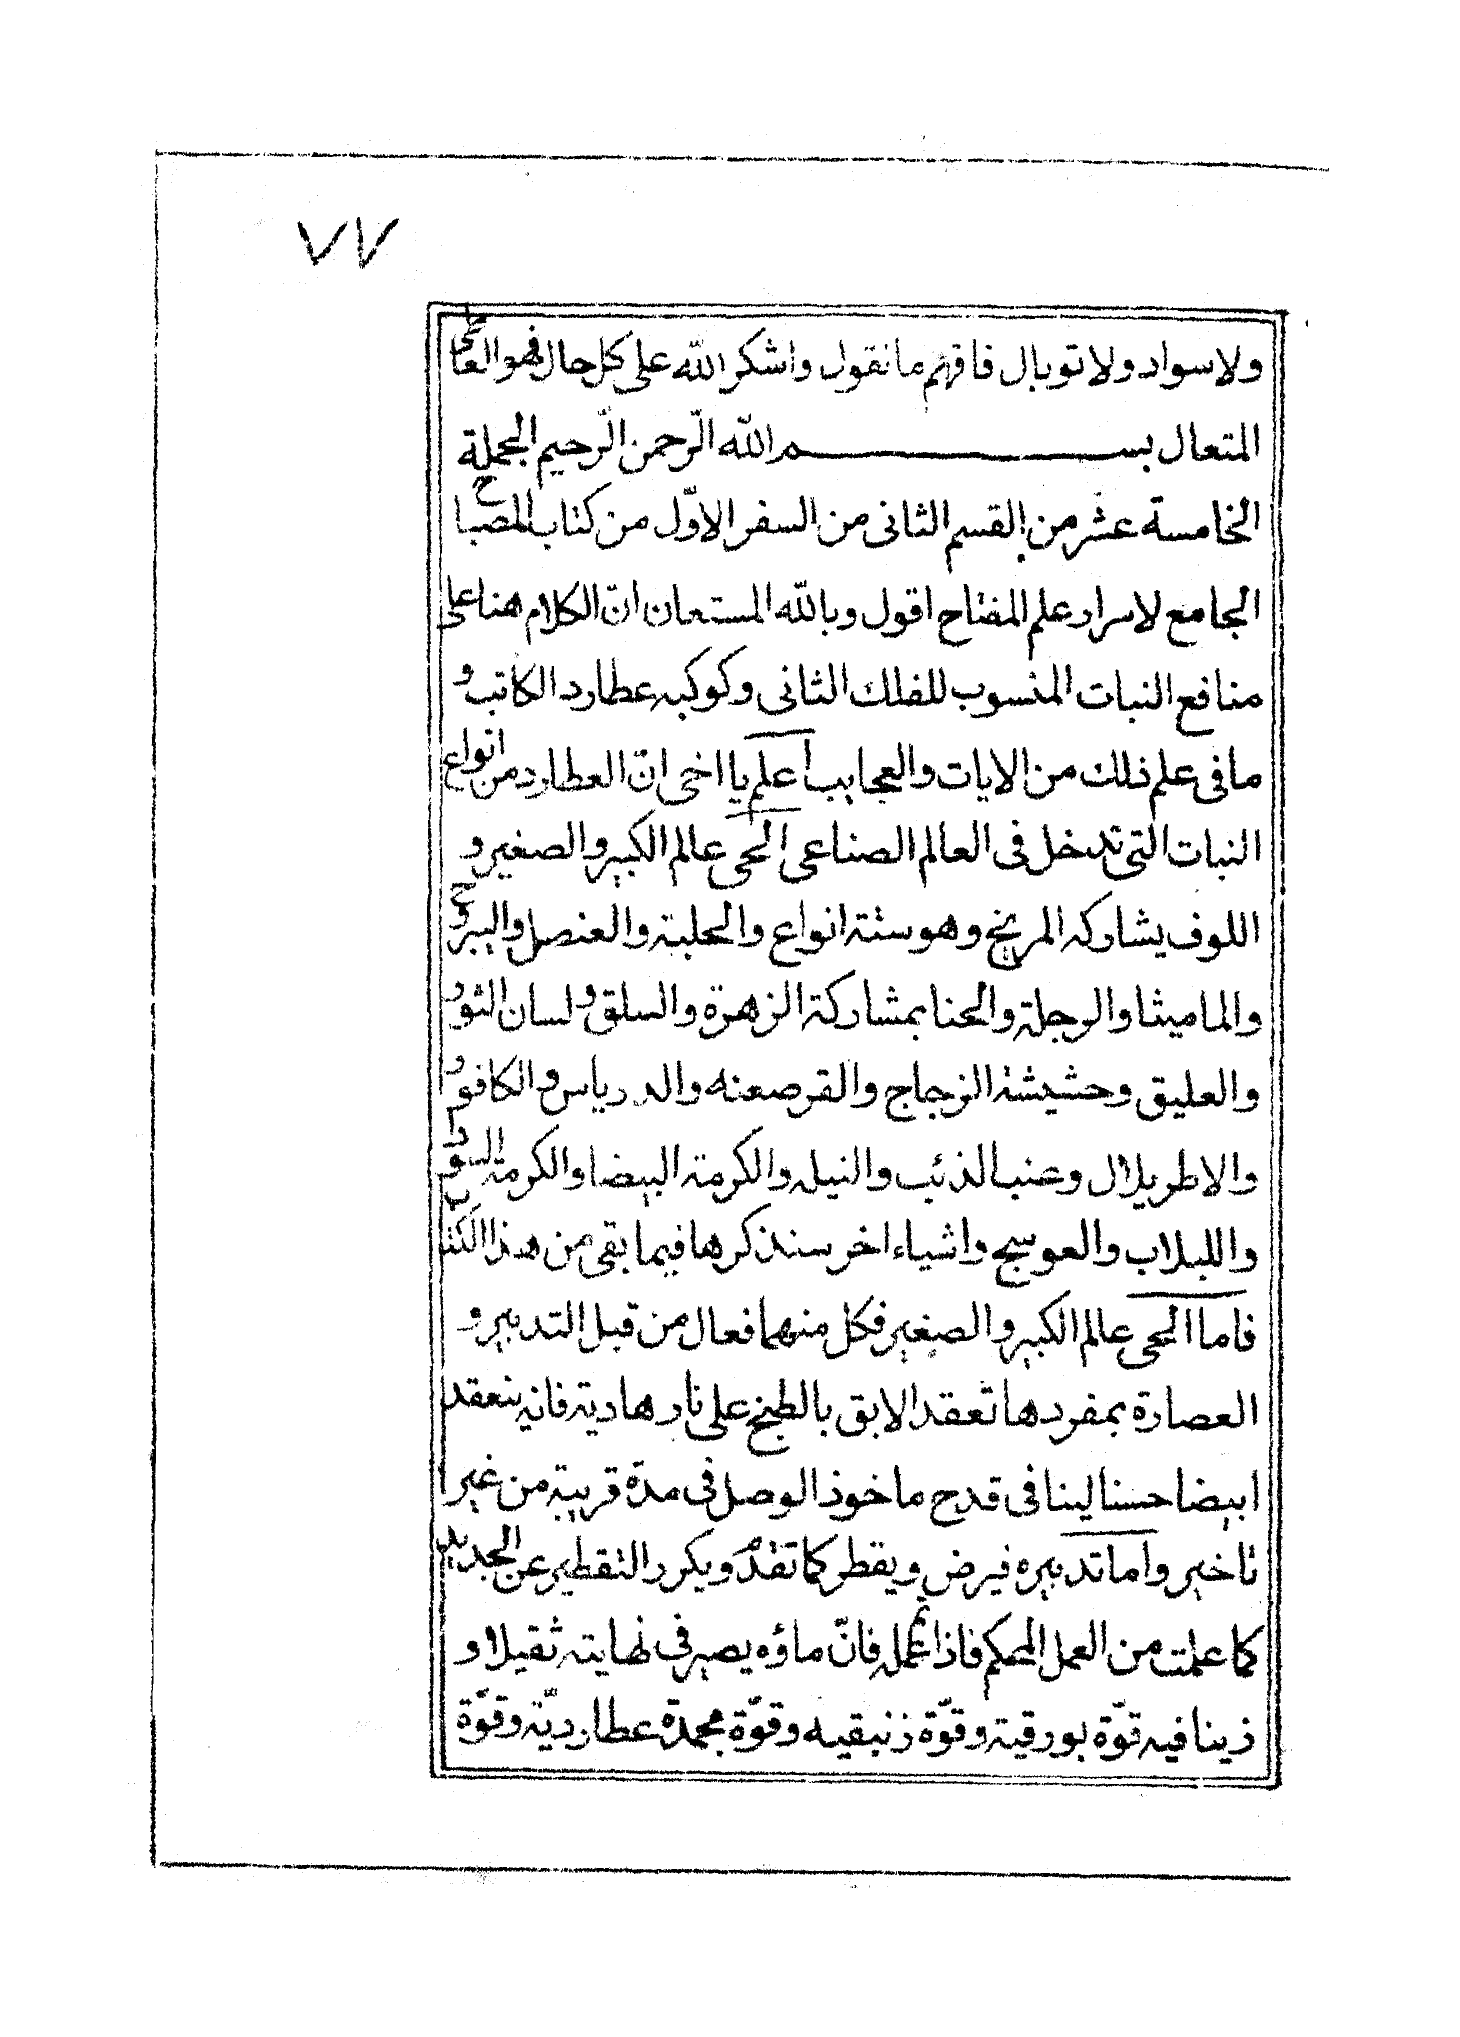 ٧٧
ولا سواد ولا توبال فافهم ما نقول واشكر الله على كل حال فهو العاطي
المتعال بسم الله الرّحمن الرّحيم الجملة
الخامسة عشر من القسم الثانى من السفر الاوّل من كتاب المصباح
الجامع لاسرار علم المفتاح اقول وبالله المستعان انّ الكلام هنا على
منافع النبات المنسوب للفلك الثانى وكوكبه عطارد الكاتب و
ما فى علم ذلك من الايات والعجايب أعلم يا اخى انّ العطارد من انواع
النبات التى تدخل فى العالم الصناعى الحى عالم الكبير والصغير و
اللوف يشاركه المريخ وهو ستة انواع والحلبة والعنصل واليبروح
والماميثا والرجلة والحنا بمشاركة الزهرة والسلق ولسان الثور
والعليق وحشيشة الزجاج والقرصعنه والدرياس والكافور
والاطريلال وعنب الذئب والنيله والكرمة البيضا والكرمة السودا
واللبلاب والعوسج واشياء اخر سنذكرها فيما بقى من هذا الكتاب
فاما الحى عالم الكبير والصغير فكل منهما فعال من قبل التدبير و
العصارة بمفردها تعقد الابق بالطبخ على نار هادية فانه ينعقد
ابيضا حسنا لينا فى قدح ماخوذ الوصل فى مدة قريبة من غير
تاخير واما تدبيره فيرض ويقطر كما تقدّم ويكرر التقطير عن الجديد
كما علمت من العمل المحكم فاذا تم عمله فانّ ماؤه يصير فى نهايته ثقيلا و
زينا فيه قوّة بورقية وقوّة زنبقيه وقوّة مجمدة عطارديّة وقوّة